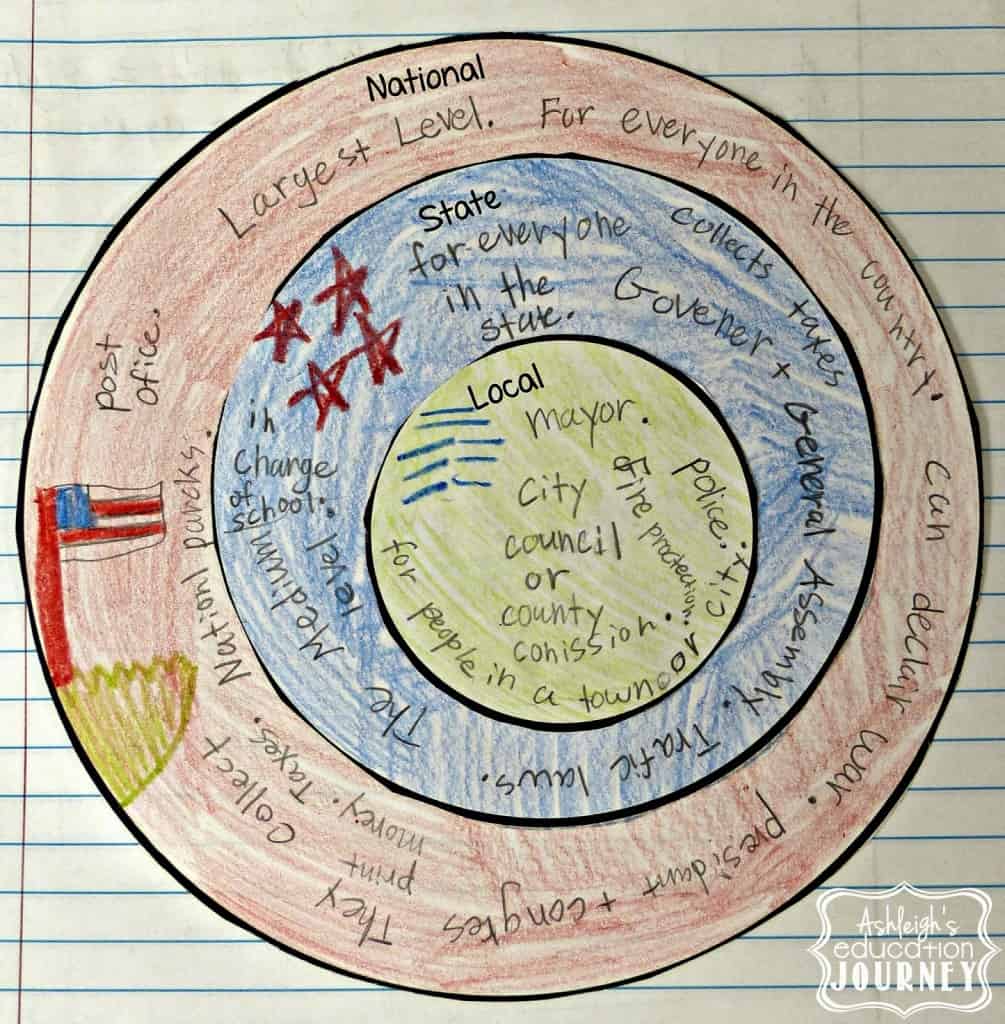 National
Largest Level. For everyone in the country. can declar war. presidant + congres They print money. Collect Taxes. National parcks. post ofice.
State
for everyone
in the
state.
collects taxes
Govener + General Assembly. Trafic laws. The Medium level
in
change
of
school.
Local
mayor.
police.
Fire proctection.
City
council
or
county
cohission.
for people in a town or city.
Ashleigh's
education
JOURNEY